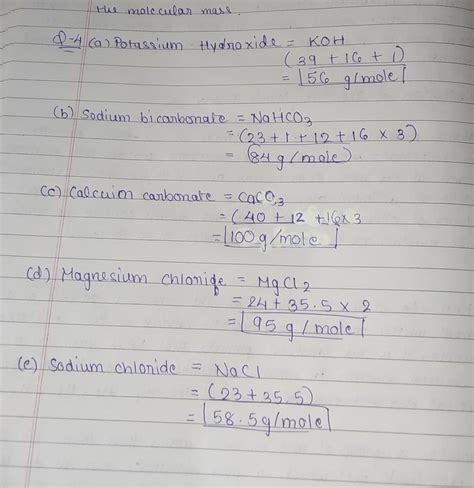 the molecular mass.
Q-4 (a) Potassium Hydroxide = KOH
(39 + 16 + 1)
= 56 g/mole
(b) Sodium bicarbonate = NaHCO3
= (23 + 1 + 12 + 16 × 3)
= (84 g/mole).
(c) Calcuim carbonate = CaCO3
= (40 + 12 + 16×3
= 100 g/mole
(d) Magnesium chloride = MgCl2
= 24 + 35.5 × 2
= 95 g/mole
(e) Sodium chloride = NaCl
= (23 + 35.5)
= 58.5g/mole